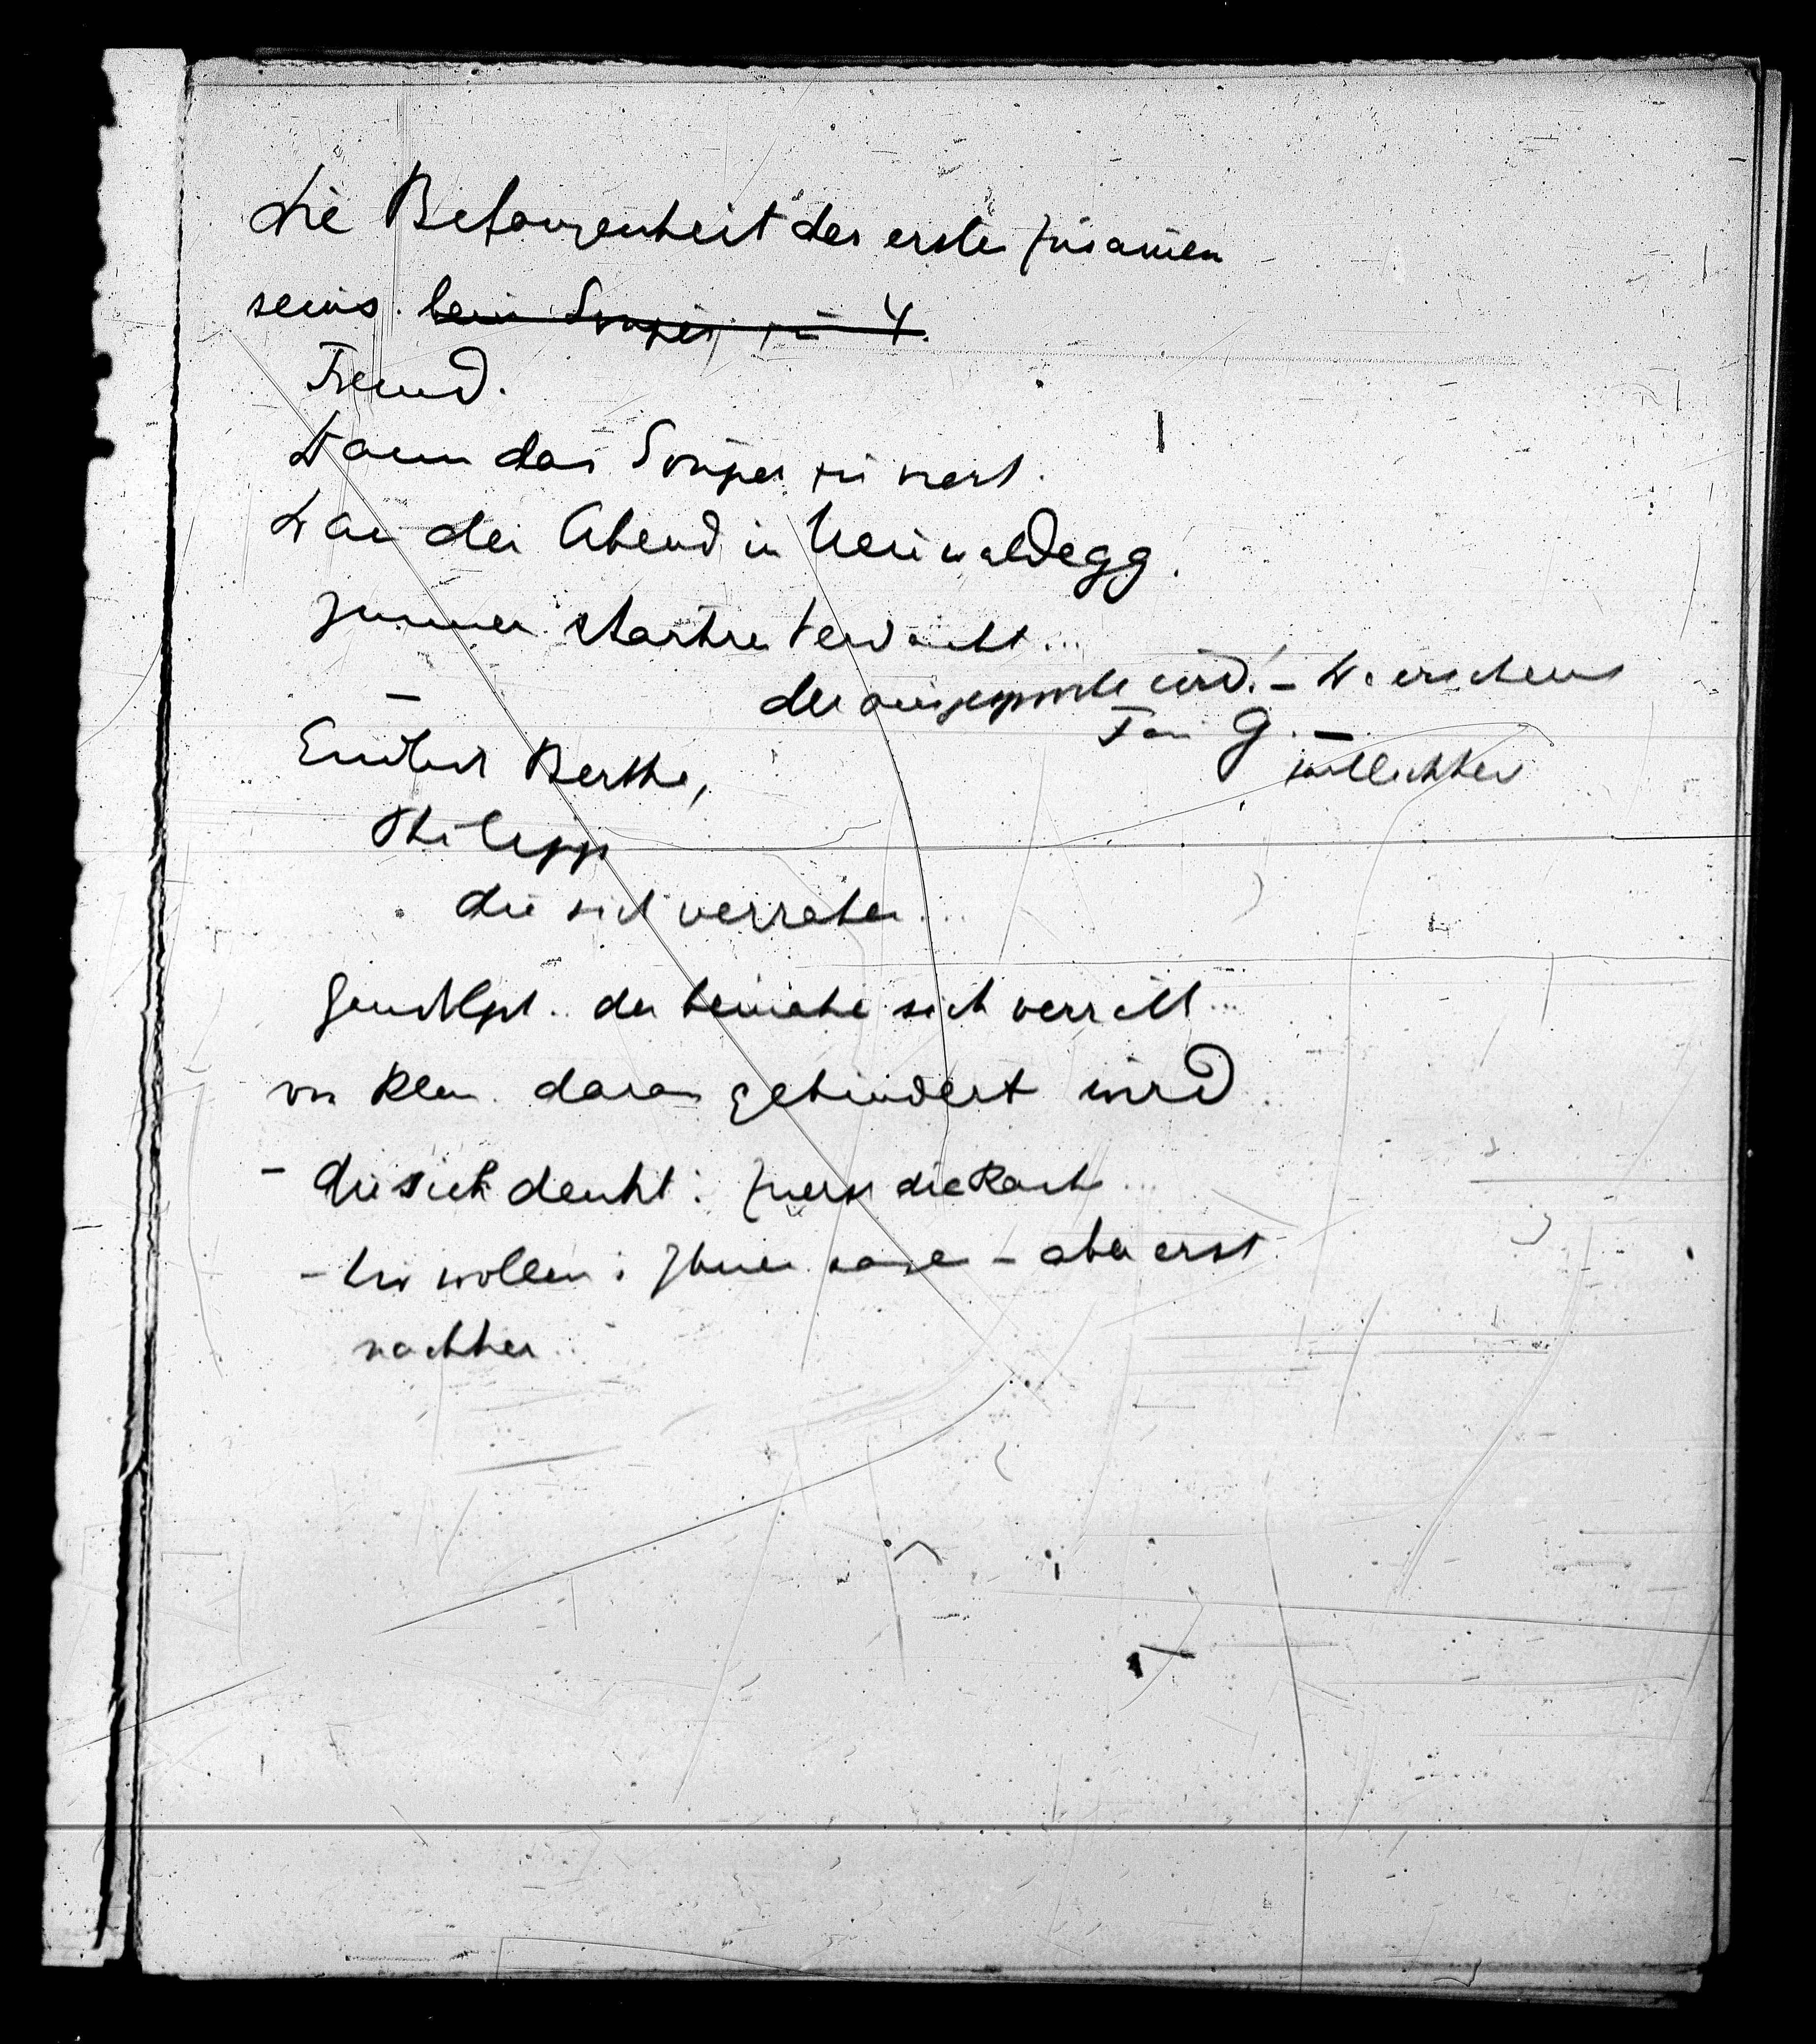 Die Befangenheit des ersten Zusammen
seins. beim Souper zu 4.
Freund.
Dann das Souper zu viert.
Dann der Abend in Neuwaldegg.
Immer stärkrer Verdacht...
der ausgesprochen wird! –
G. –
Berthe,
Philipp
die sich verrathen...
der beinahe sich verräth...
von daran gehindert wird..
– die sich denkt: Zuerst die Rache...
– Wir wollen: Ihnen sagen – aber erst
nachher..